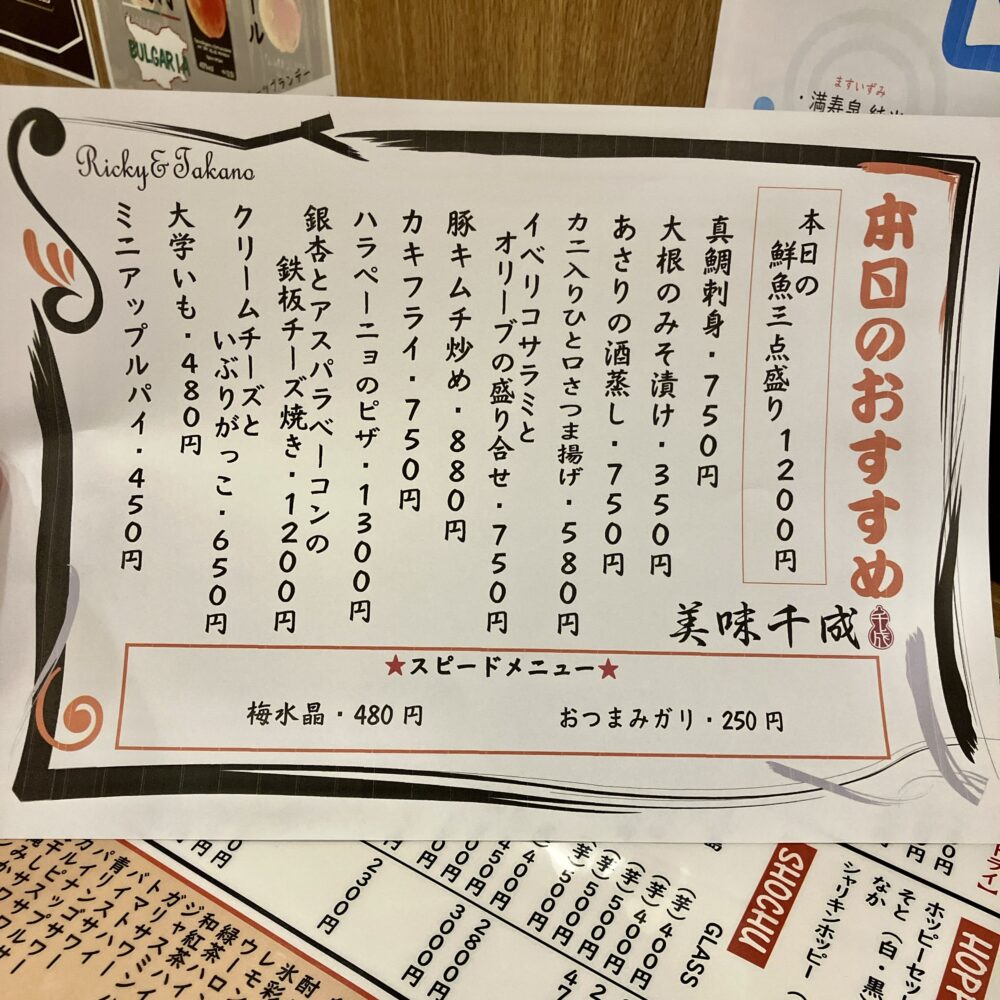 本日のおすすめ
美味千成
千成
本日の
鮮魚三点盛り 1200円
真鯛刺身・750円
大根のみそ漬け・350円
あさりの酒蒸し・750円
カニ入りひと口さつま揚げ・580円
イベリコサラミと
オリーブの盛り合せ・750円
豚キムチ炒め・880円
カキフライ・750円
ハラペーニョのピザ・1300円
銀杏とアスパラベーコンの
鉄板チーズ焼き・1200円
クリームチーズと
いぶりがっこ・650円
大学いも・480円
ミニアップルパイ・450円
Ricky&Takano
★スピードメニュー★
梅水晶・480円
おつまみガリ・250円
BULGARIA
ますいずみ
・満寿泉
HOPP
ホッピーセッ
そと(白・黒
なか
シャリキンホッピー
SHOCHU
GLASS
(芋)400円
(芋)500円
(芋)500円
(芋)400円
2800
3000円
2300円